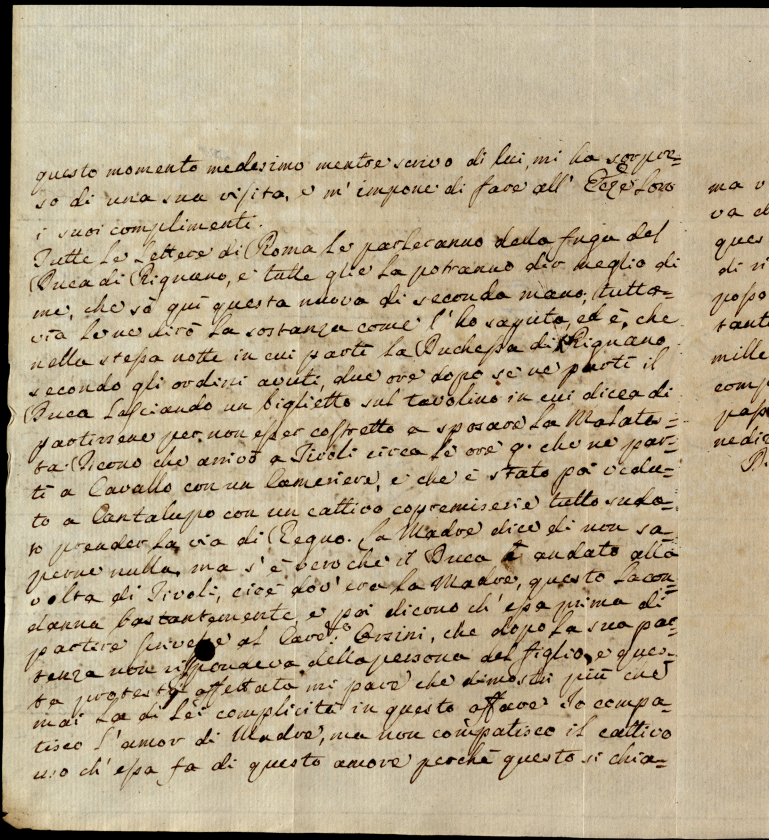 questo momento medesimo mentre scrivo di lui, mi ha sorpre=
so di una sua visita, e m'impone di fare all' Ecc:e Loro
i suoi complimenti.
Tutte le Lettere di Roma le parleranno della fuga del
Duca di Rignano, e tutte glie la potranno dir meglio di
me, che sò quì questa nuova di seconda mano; tutta=
via le ne dirò la sostanza come l'ho saputa, ed è, che
nella stessa notte in cui partì la Duchessa di Rignano
secondo gli ordini avuti, due ore dopo se ne partì il
Duca lasciando un biglietto sul tavolino in cui dicea di
partirsene per non esser costretto a sposare la Malates=
ta. Dicono che arrivò a Tivoli circa le ore 9. che ne par=
tì a Cavallo con un Cameriere, e che è stato poi vedu=
to a Cantalupo con un cattivo copremiserie tutto suda=
to prender la via di Regno. La Madre dice di non sa=
perne nulla, ma s'è vero che il Duca è andato alla
volta di Tivoli, cioè dov'era la Madre, questo la con=
danna bastantemente, e poi dicono ch'essa prima di
partire scrivesse al Card:e Orsini, che dopo la sua par=
tenza non rispondeva della persona del figlio, e ques=
ta protesta affettata mi pare che dimostri più che
mai la di Lei complicità in questo affare. Io compa=
tisco l'amor di Madre, ma non compatisco il cattivo
uso ch'essa fa di questo amore perchè questo si chia=
ma v
va d
ques
di ri
posso
tant
mille
comp
pass
nedic